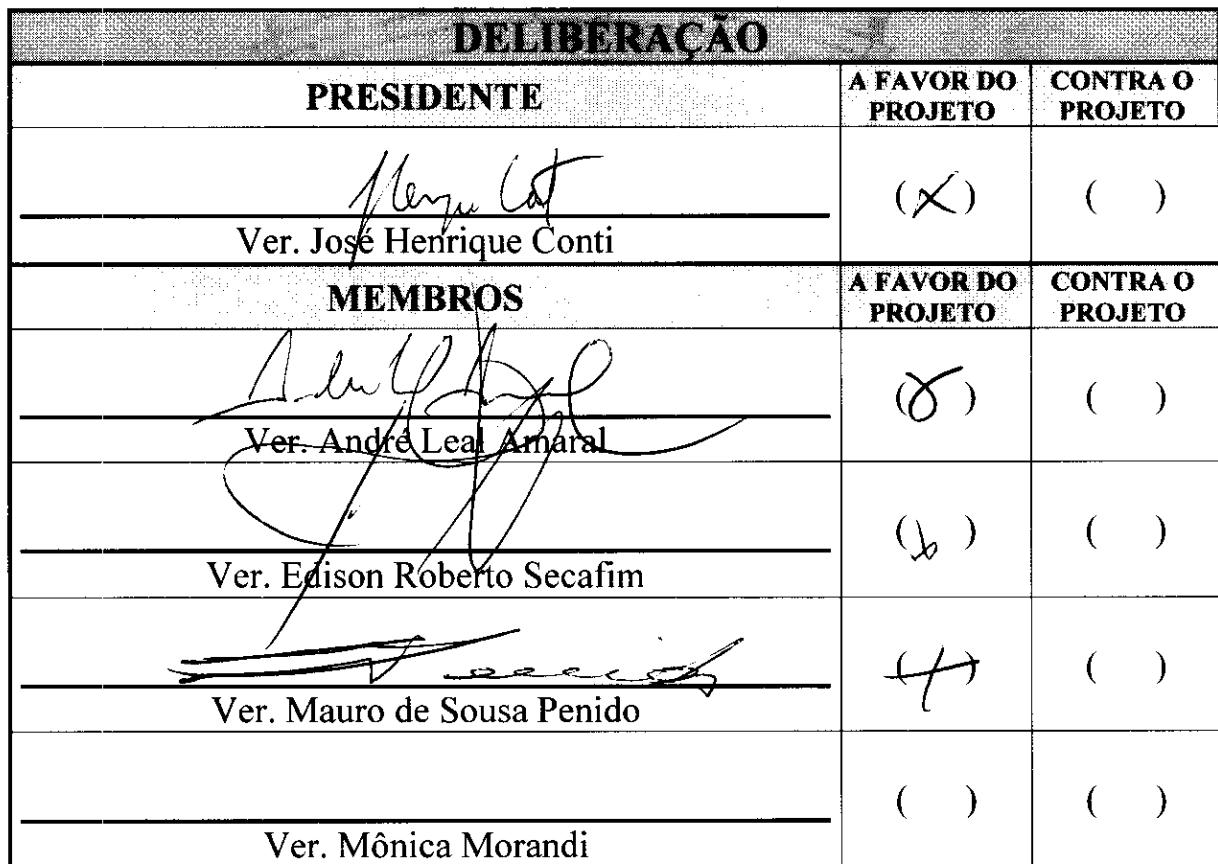 DELIBERAÇÃO
PRESIDENTE
A FAVOR DO PROJETO
CONTRA O PROJETO
(X)
( )
Ver. José Henrique Conti
MEMBROS
A FAVOR DO PROJETO
CONTRA O PROJETO
( )
Ver. André Leal Amaral
( )
Ver. Edison Roberto Secafim
( )
Ver. Mauro de Sousa Penido
( )
( )
Ver. Mônica Morandi